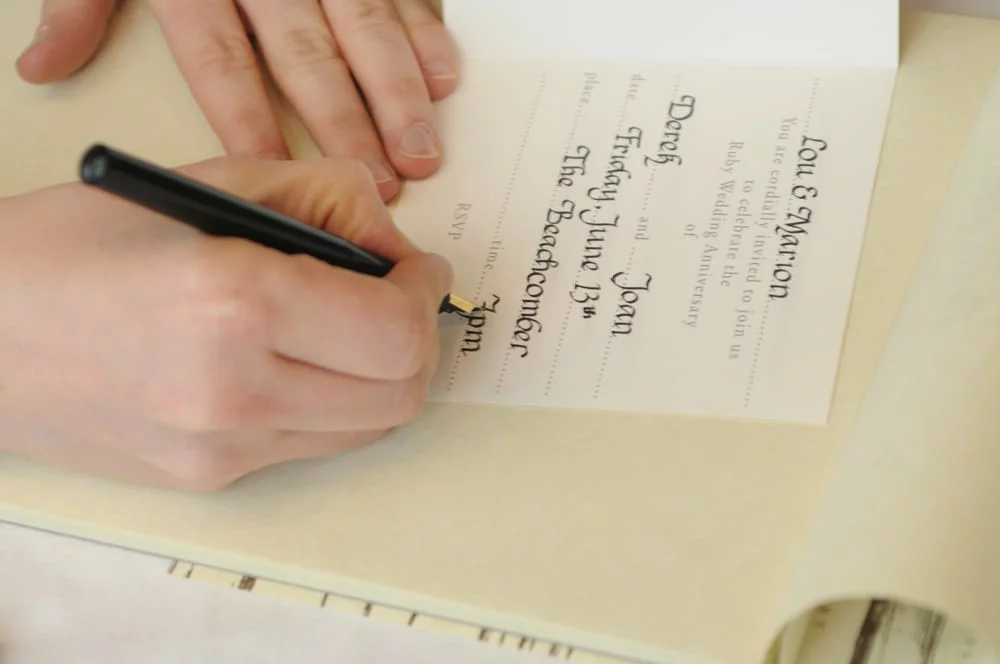 Lou & Marion
You are cordially invited to join us
to celebrate the
Ruby Wedding Anniversary
of
Derek and Joan
date Friday, June 13th
place The Beachcomber
time 7pm
RSVP